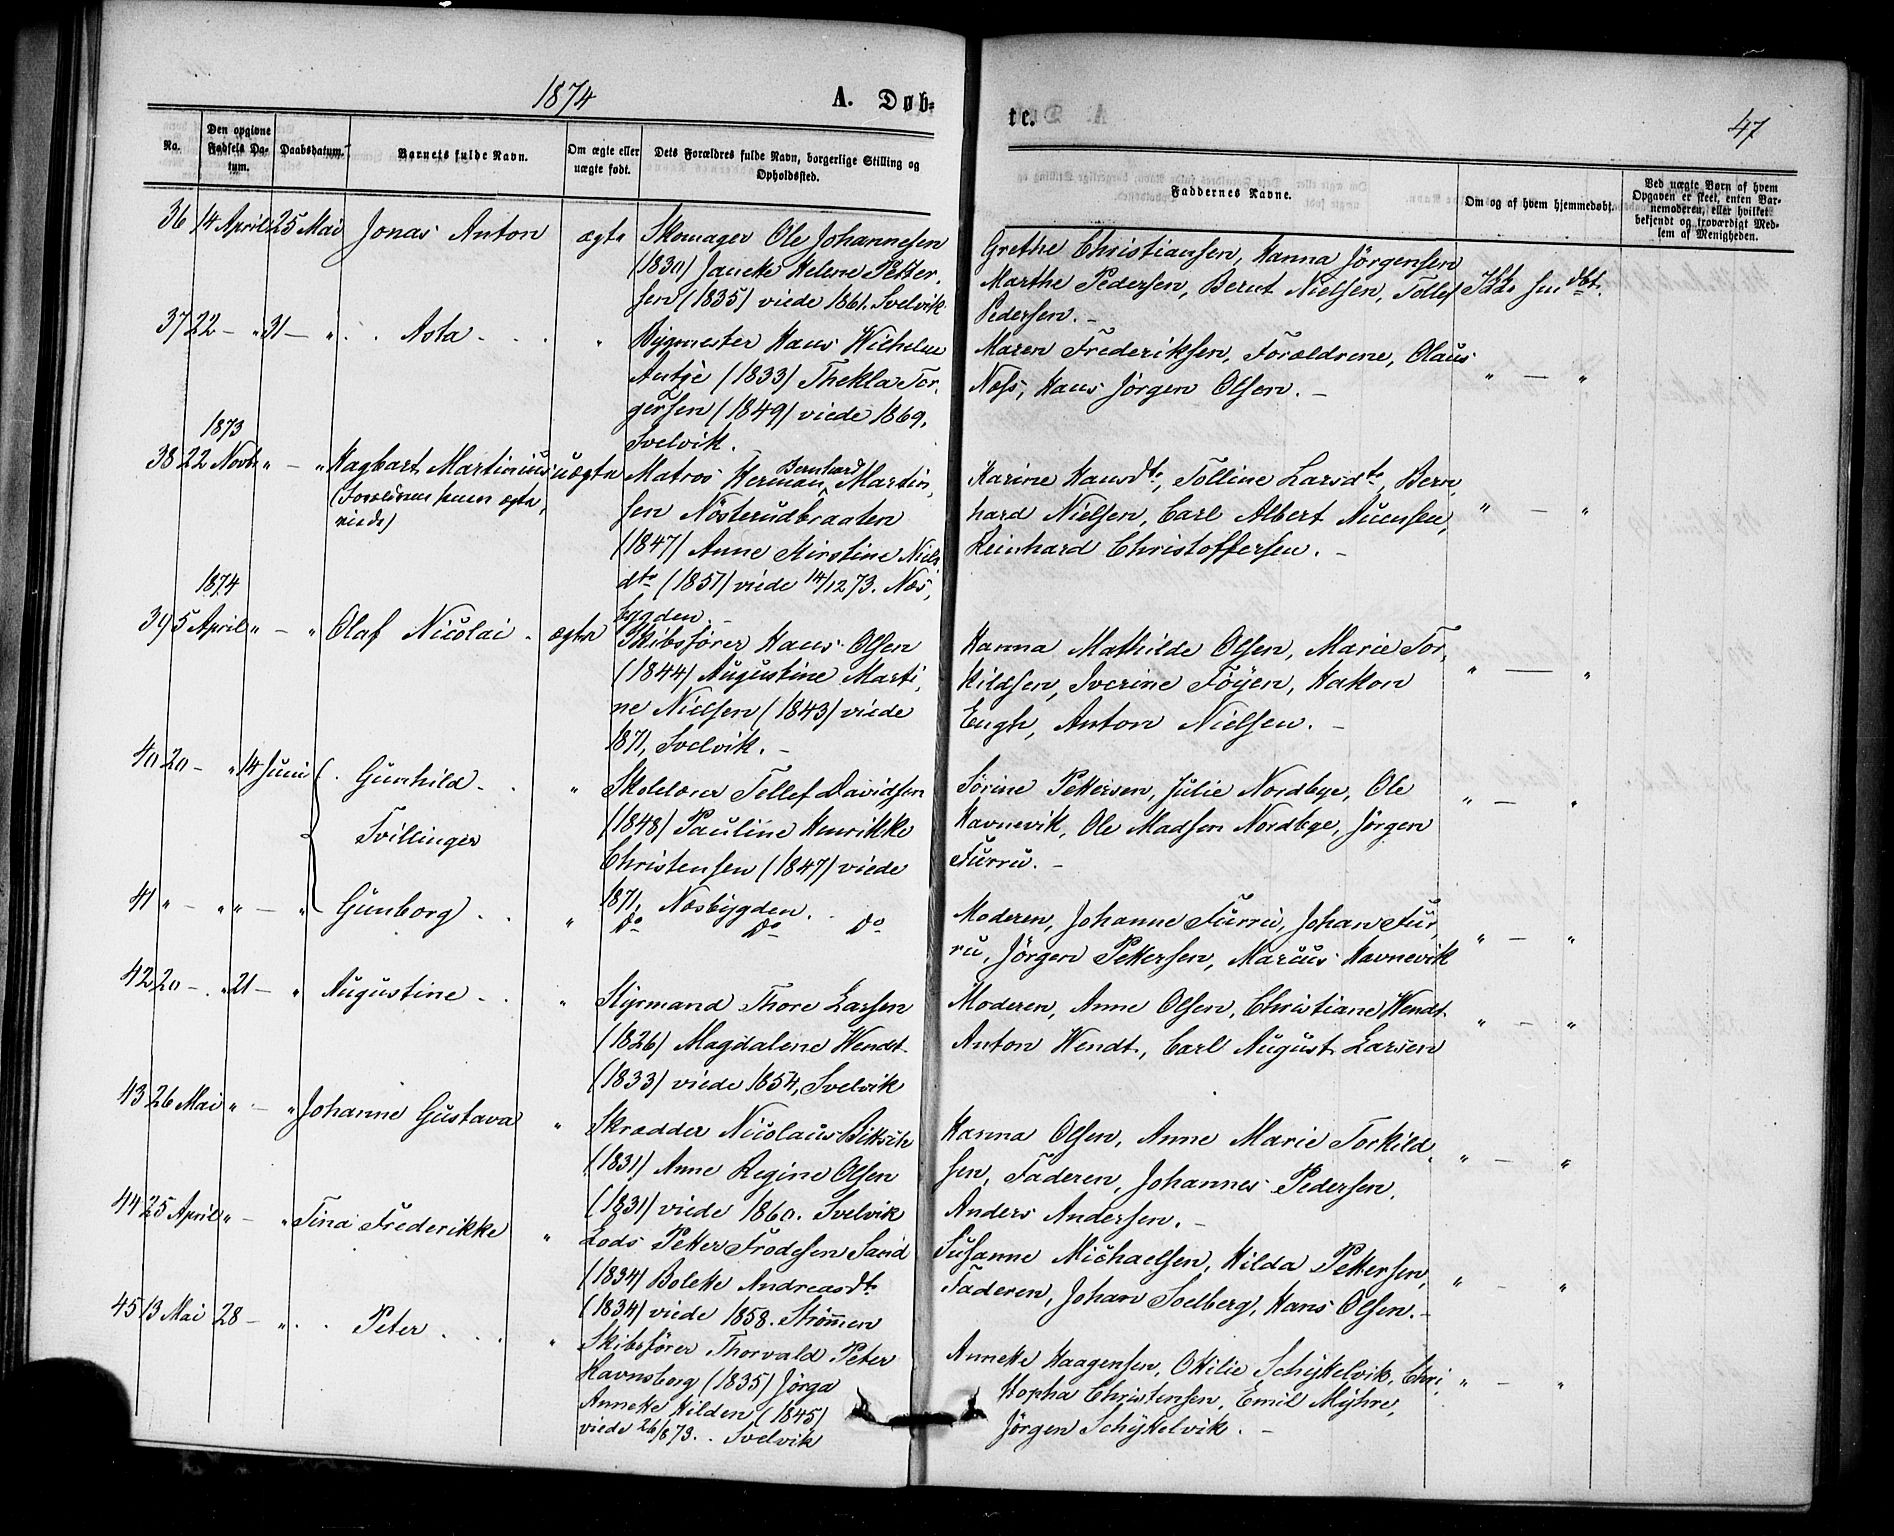 1874
A. Døb-
te.
47
No.
Den opgivne Fødsels Da-tum.
Daabsdatum.
Barnets fulde Navn.
Om ægte eller uægte født.
Dets Forældres fulde Navn, borgerlige Stilling og Opholdssted.
Faddernes Navne.
Om og af hvem hjemmedøbt.
Ved uægte Børn af hvem Opgaven er skeet, enten Bar-nemoderen, eller hvilket bekjendt og troværdigt Med-lem af Menigheden.
36 14 April 25 Mai Jonas Anton ægte Skomager Ole Johannesen
(1830) Janeke Helene Petter,
sen (1835) viede 1861. Svelvik
Grethe Christiansen, Hanna Jörgensen
Marthe Pedersen, Bernt Nielsen, Tollef
Pedersen. –
Ikke hm dbt.
37 22 – " 31 – " . . Asta . . . " Bygmester Hans Wilhelm
Antje (1833) Thekla Tor,
gersen (1849) viede 1869,
Svelvik.
Maren Frederiksen, Forældrene, Olaus
Næss, Hans Jörgen Olsen. –
" — "
1873
38 22 Novb. " – " Hagbart Martinius uægte Matros Herman Bernhard Martin,
(Forældrene kun ægte,
viede)
sen Nösterudbraaten
(1847) Anne Kirstine Niels
dtr (1851) viede 14/12 73. Næs,
bygden –
Karine Hansdtr, Tolline Larsdtr, Bern,
hard Nielsen, Carl Albert Auensen,
Reinhard Christoffersen. –
" – "
1874
39 5 April " – " Olaf Nicolai . ægte Skibsförer Hans Olsen
(1844) Augustine Marti,
ne Nielsen (1843) viede
1871, Svelvik. –
Hanna Mathilde Olsen, Marie Tor,
kildsen, Iverine Föyen, Hakon
Engh, Anton Nielsen. –
" — "
40 20 – " 14 Juni . Gunhild . . " Skolelærer Tellef Davidsen
Tvillinger
(1848) Pauline Henrikke
Christensen (1847) viede
1871, Næsbygden .
Sörine Pettersen, Julie Nordbye, Ole
Havnevik, Ole Madsen Nordbye, Jörgen
Furru. –
" – "
41 " – " " – " Gunborg . . " Do Do Do
Moderen, Johanne Furru, Johan Fur,
ru, Jörgen Pettersen, Marcus Havnevik
" – "
42 20 – . " 21 – " Augustine . . " Styrmand Thore Larsen
(1826) Magdalene Wendt
(1833) viede 1854, Svelvik
Moderen, Anne Olsen, Christiane Wendt
Anton Wendt, Carl August Larsen
" – "
43 26 Mai " – " Johanne Gustava " Skrædder Nicolaus
(1831) Anne Regine Olsen
(1831) viede 1860. Svelvik
Hanna Olsen, Anne Marie Torkild,
sen, Faderen, Johannes Pedersen,
Anders Andersen. –
" – "
44 25 April " – " Tina Frederikke " Lods Petter Frodesen Sand
(1834) Bolette Andreasdtr
(1834) viede 1858. Strömmen
Susanne Michaelsen, Hilda Pettersen,
Faderen, Johan Solberg, Hans Olsen. –
" – "
45 13 Mai 28 – " . . Peter . . . " Skibsförer Thorvald Peter
Havnsborg (1835) Jörga
Annette Kilden (1845)
viede 26/8 73. . Svelvik
Annette Haagensen, Ottilie Schjykelvik, Chri,
stopha Christensen, Emil Myhre,
Jörgen Schjykelvik. –
" – "